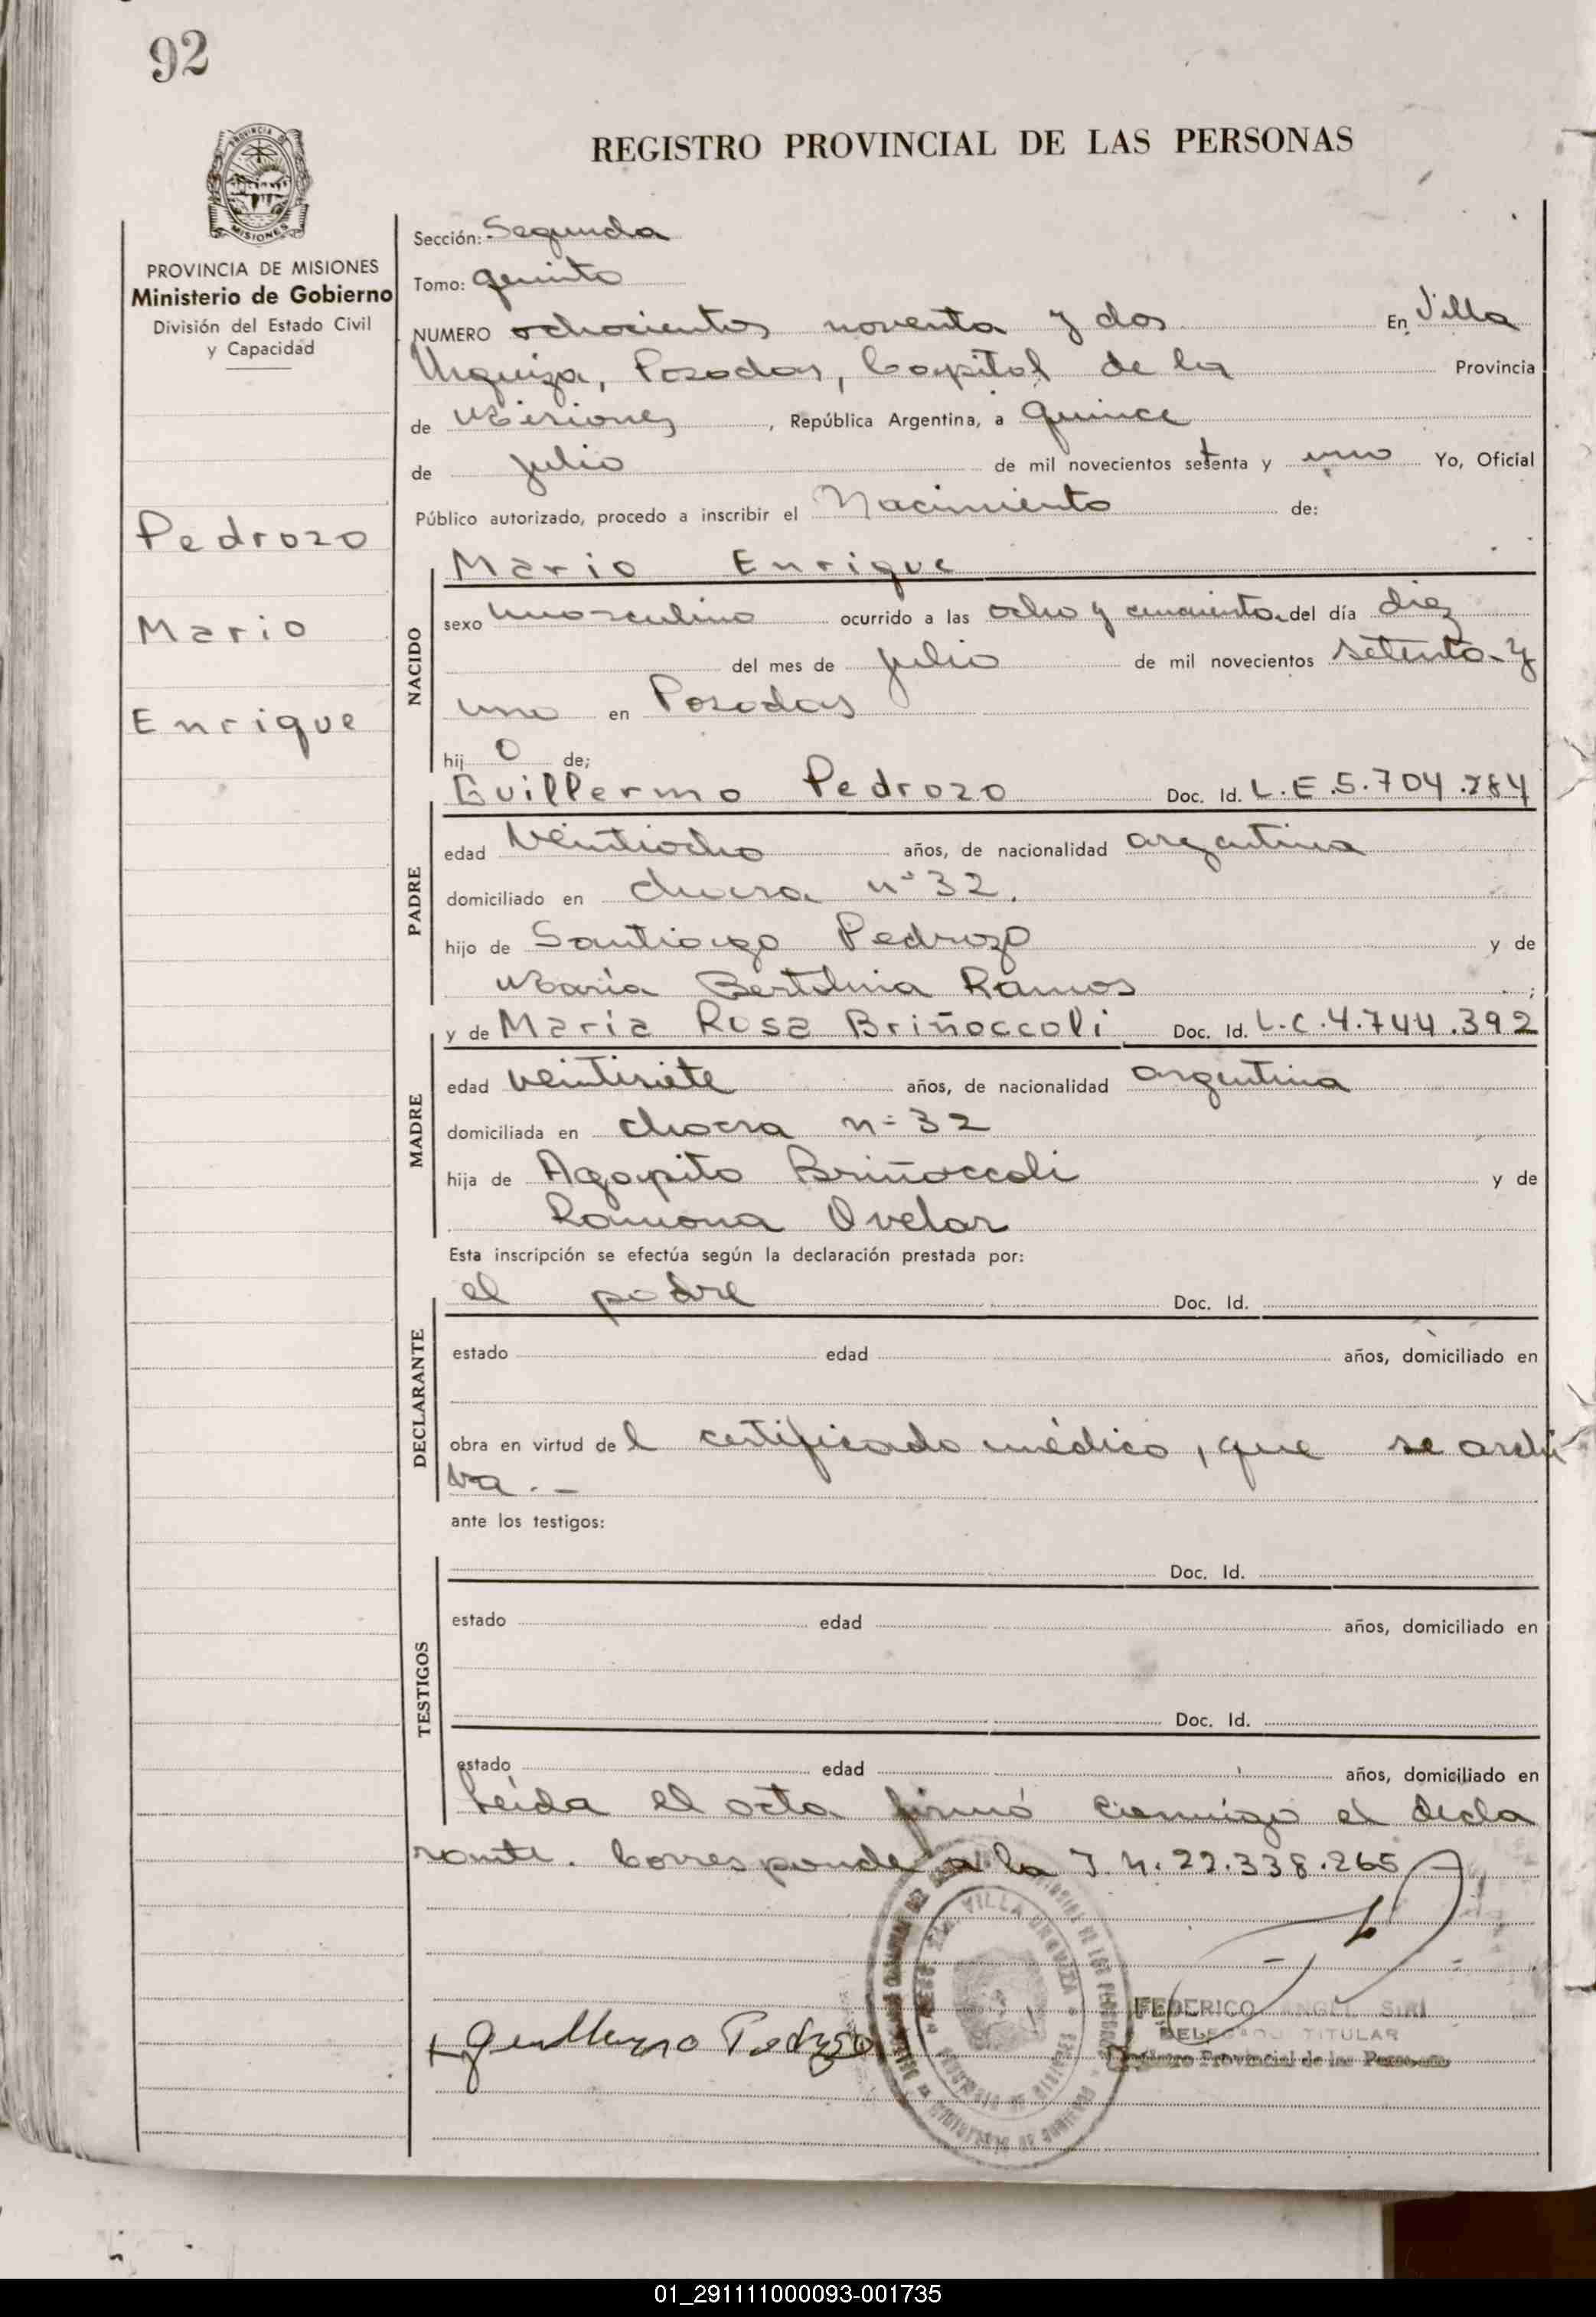 92
PROVINCIA DE MISIONES
REGISTRO PROVINCIAL DE LAS PERSONAS
PROVINCIA DE MISIONES
Ministerio de Gobierno
División del Estado Civil
y Capacidad
Pedrozo
Mario
Enrique
Sección: Segunda
Tomo: quinto
NUMERO ochocientos noventa y dos En Villa
Urquiza, Posadas, Capital de la Provincia
de Misiones, República Argentina, a quince
de julio de mil novecientos setenta y uno Yo, Oficial
Público autorizado, procedo a inscribir el Nacimiento de:
Mario Enrique
NACIDO
sexo masculino ocurrido a las ocho y cincuenta del día diez
del mes de julio de mil novecientos setenta y
uno en Posadas
hijo de;
Guillermo Pedrozo Doc. Id. L.E.5.704.784
PADRE
edad veintiocho años, de nacionalidad argentina
domiciliado en chacra n° 32.
hijo de Santiago Pedrozo y de
María Ramos;
y de María Rosa Briñoccoli Doc. Id. L.C.4.744.392
MADRE
edad veintisiete años, de nacionalidad argentina
domiciliada en chacra n° 32
hija de Agapito Briñoccoli y de
Ramona Ovelar
Esta inscripción se efectúa según la declaración prestada por:
el padre Doc. Id.
DECLARANTE
estado edad años, domiciliado en
obra en virtud del certificado médico, que se archi
va.-
ante los testigos:
Doc. Id.
TESTIGOS
estado edad años, domiciliado en
Doc. Id.
estado edad años, domiciliado en
Leída el acta firmó conmigo el decla
rante. Corresponde a la I.N. 22.338.265
VILLA URQUIZA
Guillermo Pedrozo
FEDERICO ANGEL SIRI
DELEGADO TITULAR
Registro Provincial de las Personas
01_291111000093-001735